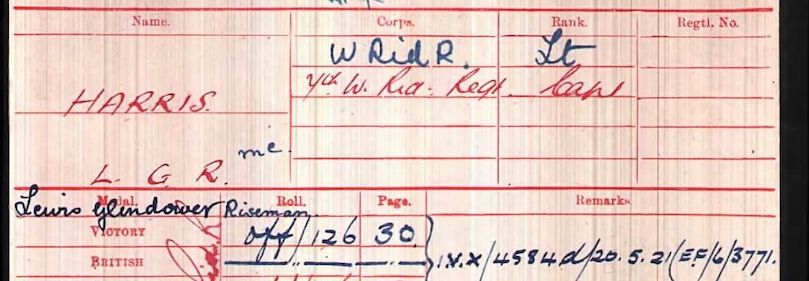 Name. Corps. Rank. Regtl. No.
W Rid R. Lt
HARRIS. W. Rid. Regt. Capt
L. G. R. mc.
Medal. Roll. Page. Remarks
Lewis Glendower Riseman
VICTORY off/126 30
BRITISH " " I.V.X/4584d/20.5.21(EF/6/3771.